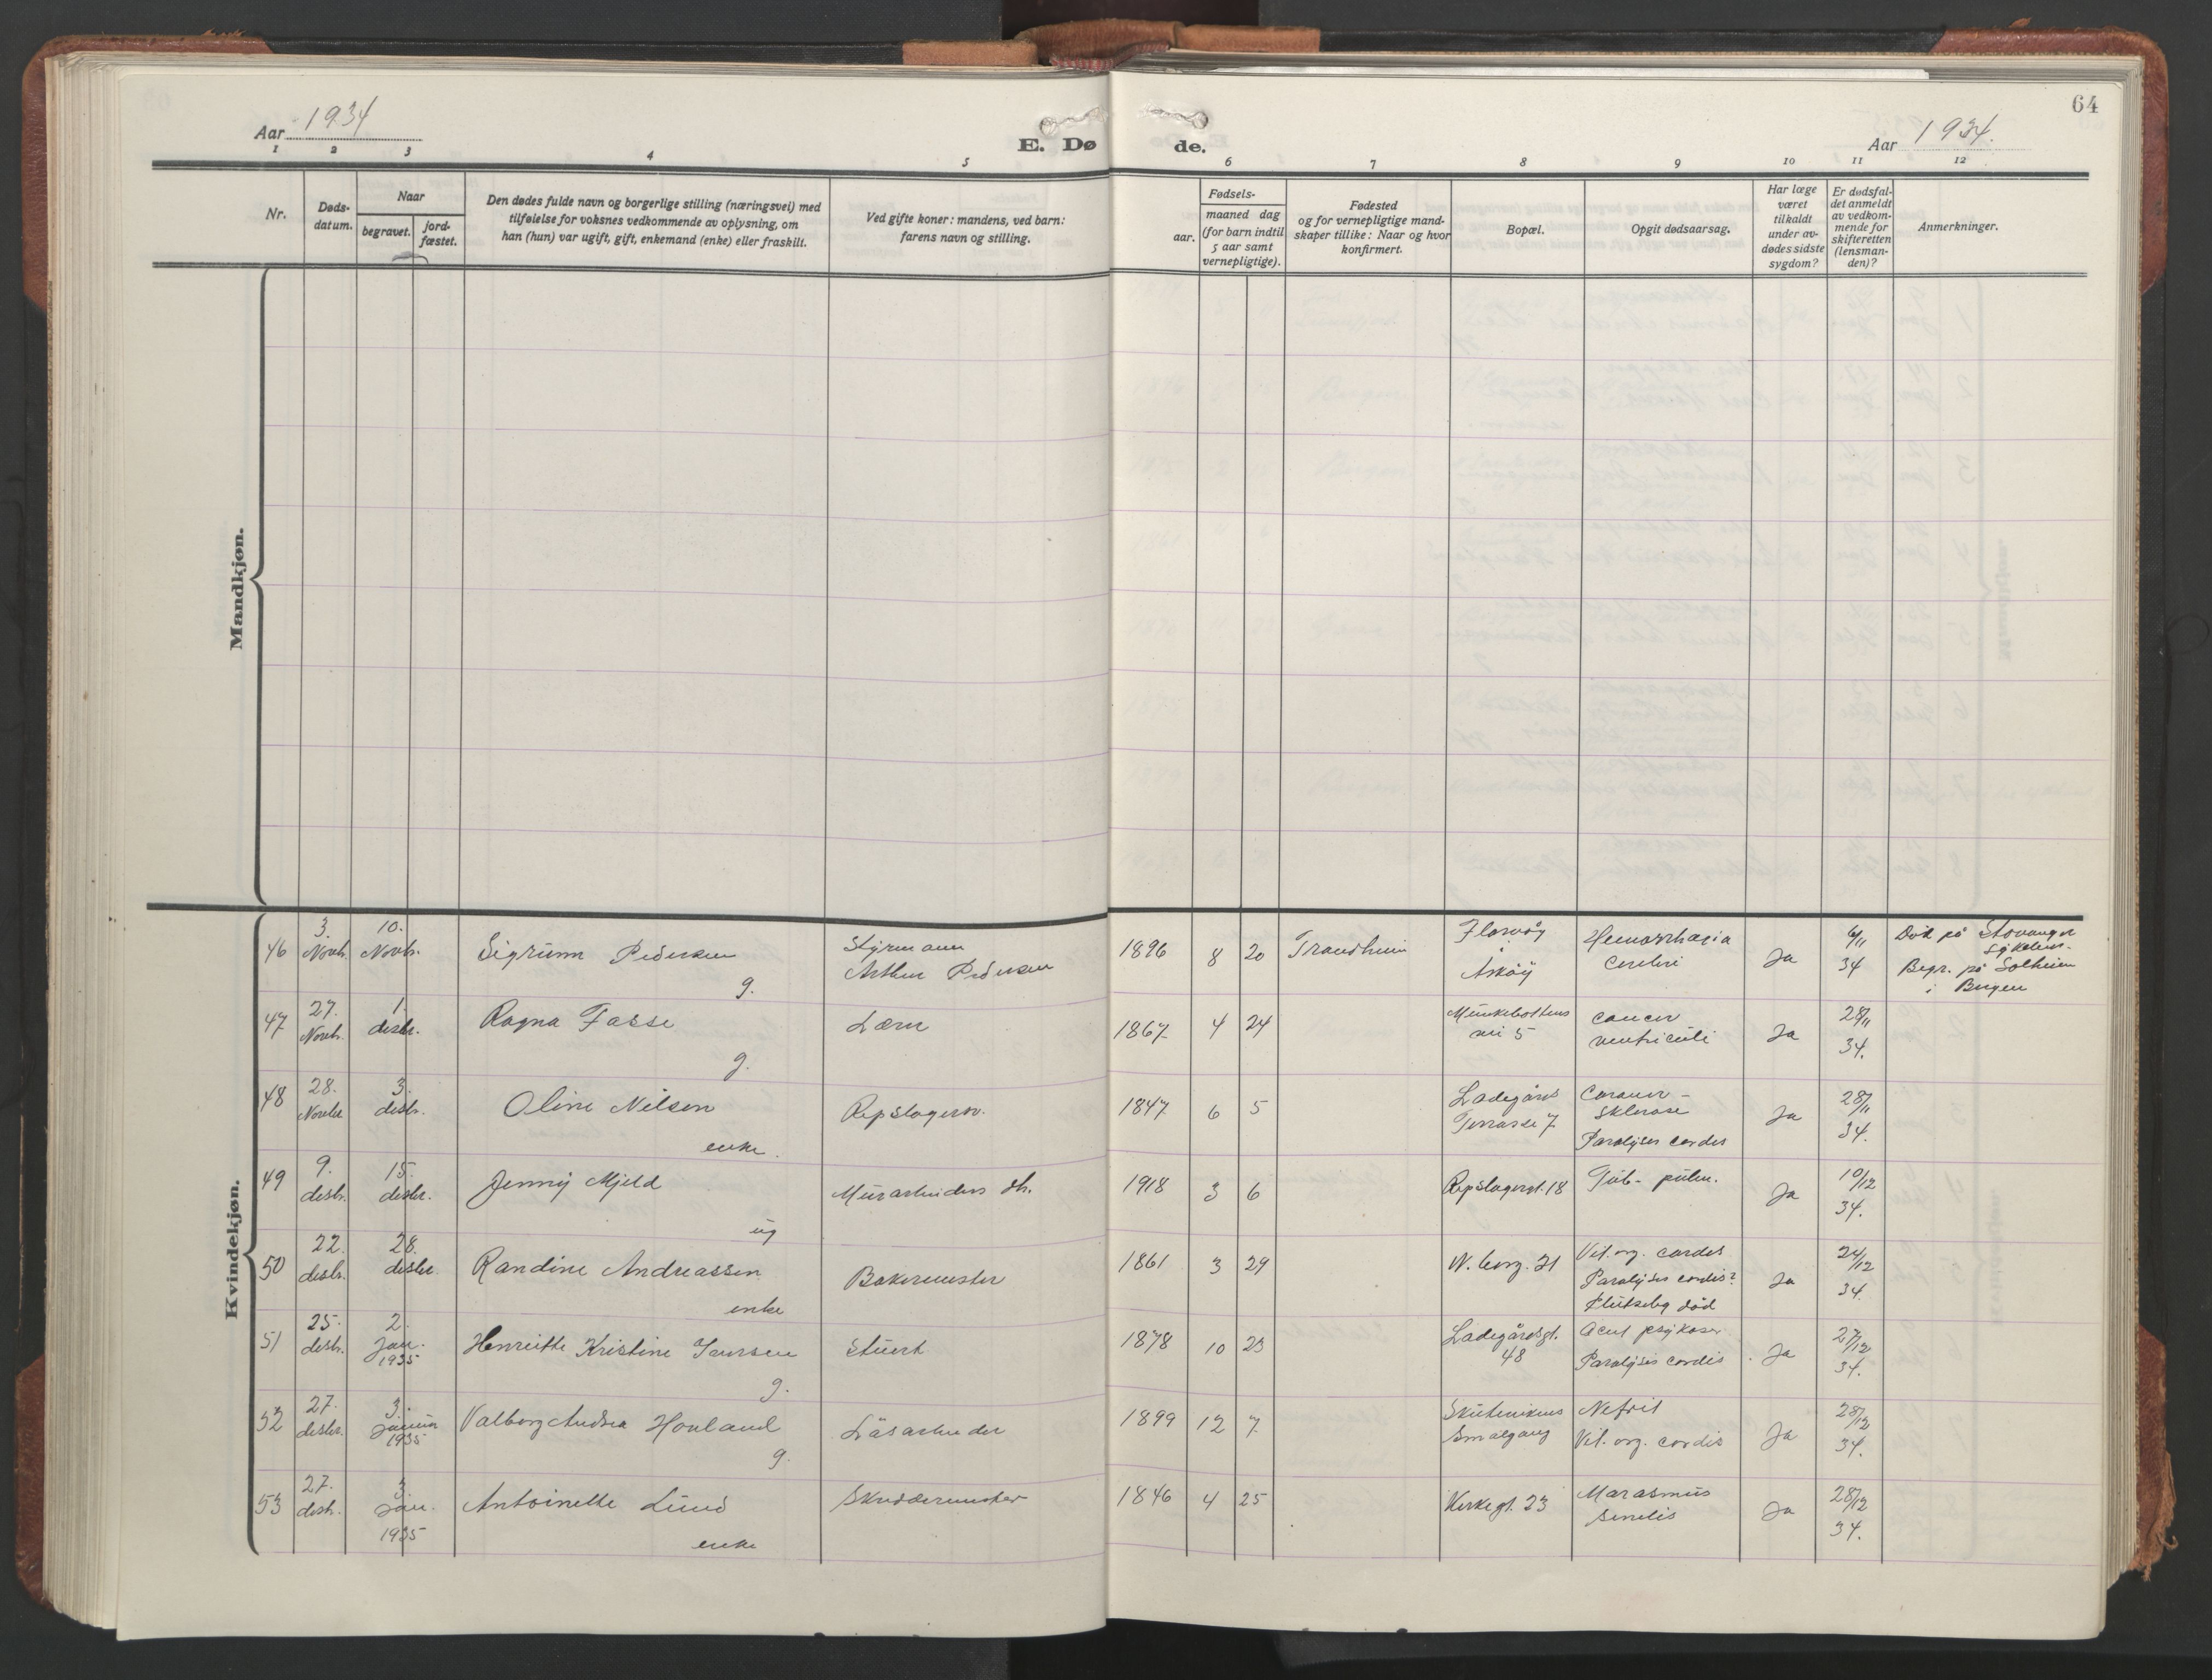 Aar 1934
E. Dø
de.
Aar 1934.
64
1 2 3 4 5 6 7 8 9 10 11 12
Nr.
Døds-
datum.
Naar
begravet.
jord-
fæstet.
Den dødes fulde navn og borgerlige stilling (næringsvei) med
tilføielse for voksnes vedkommende av oplysning, om
han (hun) var ugift, gift, enkemand (enke) eller fraskilt.
Ved gifte koner: mandens, ved barn:
farens navn og stilling.
Fødsels-
aar.
maaned dag
(for barn indtil
5 aar samt
vernepligtige).
Fødested
og for vernepligtige mand-
skaper tillike: Naar og hvor
konfirmert.
Bopæl.
Opgit dødsaarsag.
Har læge
været
tilkaldt
under av-
dødes sidste
sygdom?
Er dødsfal-
det anmeldt
av vedkom-
mende for
skifteretten
(lensman-
den)?
Anmerkninger.
Mandkjøn.
Kvindekjøn.
46
3.
Novb.
10.
Novb.
Sigrunn Pedersen
g.
Styrmann
Arthur Pedersen
1896 8 20
Trondheim
Florvåg
i
Askøy
Hemorrhagia
Cerebri
Ja
6/11
34
Död på Stavanger
Sykehus.
Begr. på Solheim
i Bergen
47
27.
Novb.
1.
desbr.
Ragna Fasse
g.
Lærer
1867 4 24
Munkebottens
vei 5
Cancer
ventriculi
Ja
28/11
34.
48
28.
Novbr
3.
desbr.
Oline Nilsen
enke.
Repslagersv.
1847 6 5
Ladegårds
Terrasse 7
Coronar-
Sklerose
Paralysis cordis
Ja
28/11
34.
49
9.
desbr.
15.
desbr.
Jenny Mjeld
ug
Murarbeiders dtr.
1918 3 6
Repslagergt. 18
Tub. pulm.
Ja
10/12
34.
50
22.
desbr.
28.
desbr.
Randine Andreassen
enke
Bakermester
1861 3 29
N. berg. 21
Vit. org. cordis
Paralysis cordis?
Plutselig död
Ja
24/12
34.
51
25.
desbr.
2.
Jan.
1935
Henriette Kristine Iversen
g.
Stuert
1878 10 23
Ladegårdsgt.
48
Acut psykose
Paralysis cordis
Ja
27/12
34.
52
27.
desbr.
3.
Januar
1935
Valborg Andrea Hovland
g.
Låsarbeider
1899 12 7
Skutevikens
Smalgang
Nefrit
Vit. org. cordis
Ja
28/12
34.
53
27.
desb.
3.
Jan.
1935
Antoinette Lund
enke
Skreddermester
1846 4 25
Kirkegt. 23
Marasmus
Senilis
Ja
28/12
34.